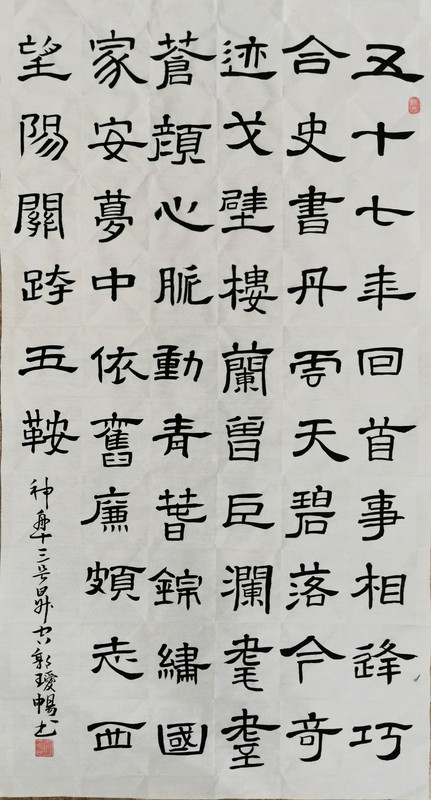 五十七年回首事相逢巧
合史書丹雲天碧落今奇
迹戈壁樓蘭曾巨瀾耄耋
蒼顏心脈動青春錦繡國
家安夢中依舊廉頗志西
望陽關跨五鞍
神舟十三号昇空郭璦暢书